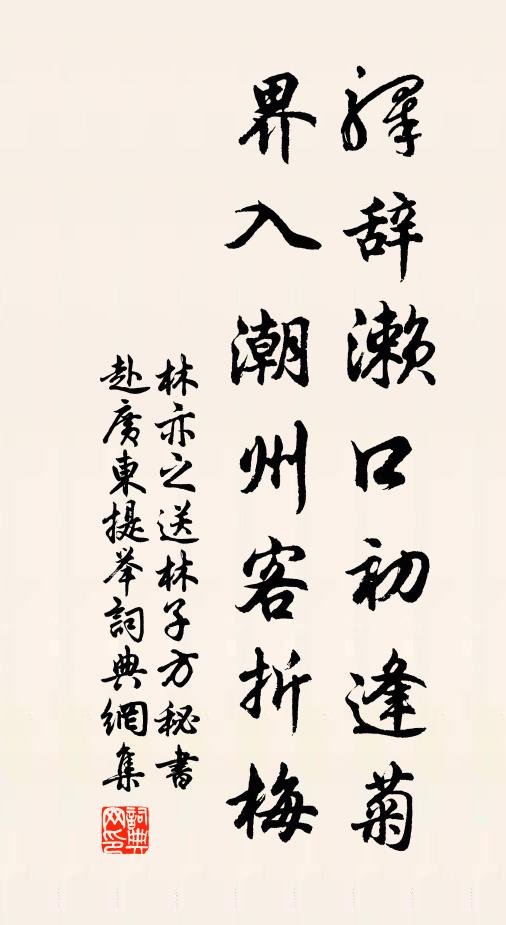 驛辞濑口初逢菊
界入潮州客折梅
林亦之送林子方秘書
赴廣東提举詞典網集
詞典
网印